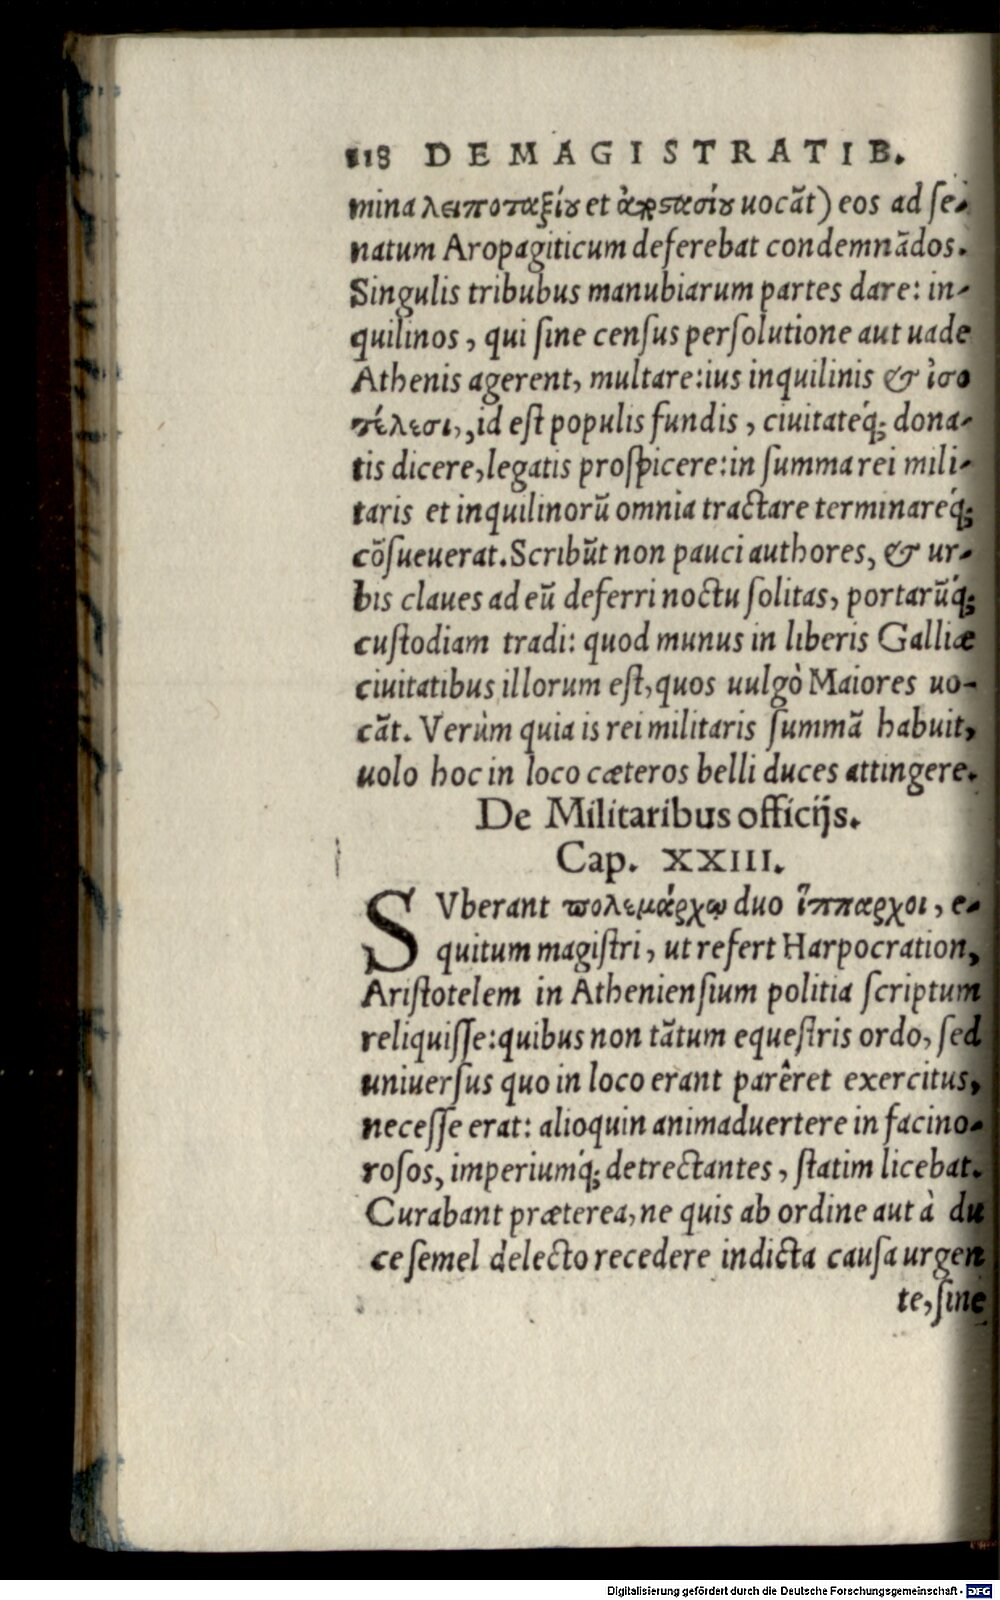 118 DE MAGISTRATIB.
mina λειποταξίȣ et ἀποστασίȣ uocãt) eos ad se-
natum Aropagiticum deferebat condemnãdos.
Singulis tribubus manubiarum partes dare: in-
quilinos, qui sine census persolutione aut uade
Athenis agerent, multare: ius inquilinis & ἰσο
τέλεσι, id est populis fundis, ciuitateq́; dona-
tis dicere, legatis prospicere: in summa rei mili-
taris et inquilinorũ omnia tractare terminareq́;
cõsueuerat. Scribũt non pauci authores, & ur-
bis claues ad eũ deferri noctu solitas, portarũq́;
custodiam tradi: quod munus in liberis Galliæ
ciuitatibus illorum est, quos uulgò Maiores uo-
cãt. Verùm quia is rei militaris summã habuit,
uolo hoc in loco cæteros belli duces attingere.
De Militaribus officijs.
Cap. XXIII.
SVberant πολεμάρχῳ duo ἵππαρχοι, e-
quitum magistri, ut refert Harpocration,
Aristotelem in Atheniensium politia scriptum
reliquisse: quibus non tãtum equestris ordo, sed
uniuersus quo in loco erant parêret exercitus,
necesse erat: alioquin animaduertere in facino-
rosos, imperiumq́; detrectantes, statim licebat.
Curabant præterea, ne quis ab ordine aut à du
ce semel delecto recedere indicta causa urgen
te, sine
Digitalisierung gefördert durch die Deutsche Forschungsgemeinschaft - DFG